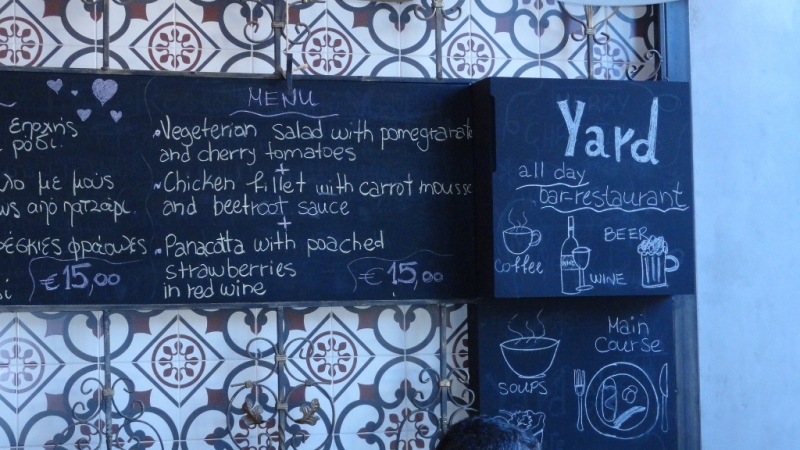 εποχής
ρόδι.
MENU
Vegeterian salad with pomegranate
and cherry tomatoes
+
Chicken fillet with carrot mousse
and beetroot sauce
+
Panacotta with poached
strawberries
in red wine
€15,00
με μους
από παντζάρι.
φράουλες
€15,00
Yard
all day
bar-restaurant
coffee
WINE
BEER
SOUPS
Main
Course